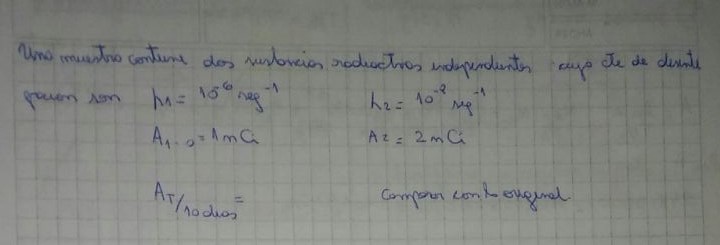 Una muestra contiene dos sustancias radiactivas independientes cuya cte de desinte
gracion son λ1 = 10^6 seg^-1 λ2 = 10^-8 seg^-1
A1-0 = 1 mCi A2 = 2 mCi
AT/10 dias = Comparar con la original.